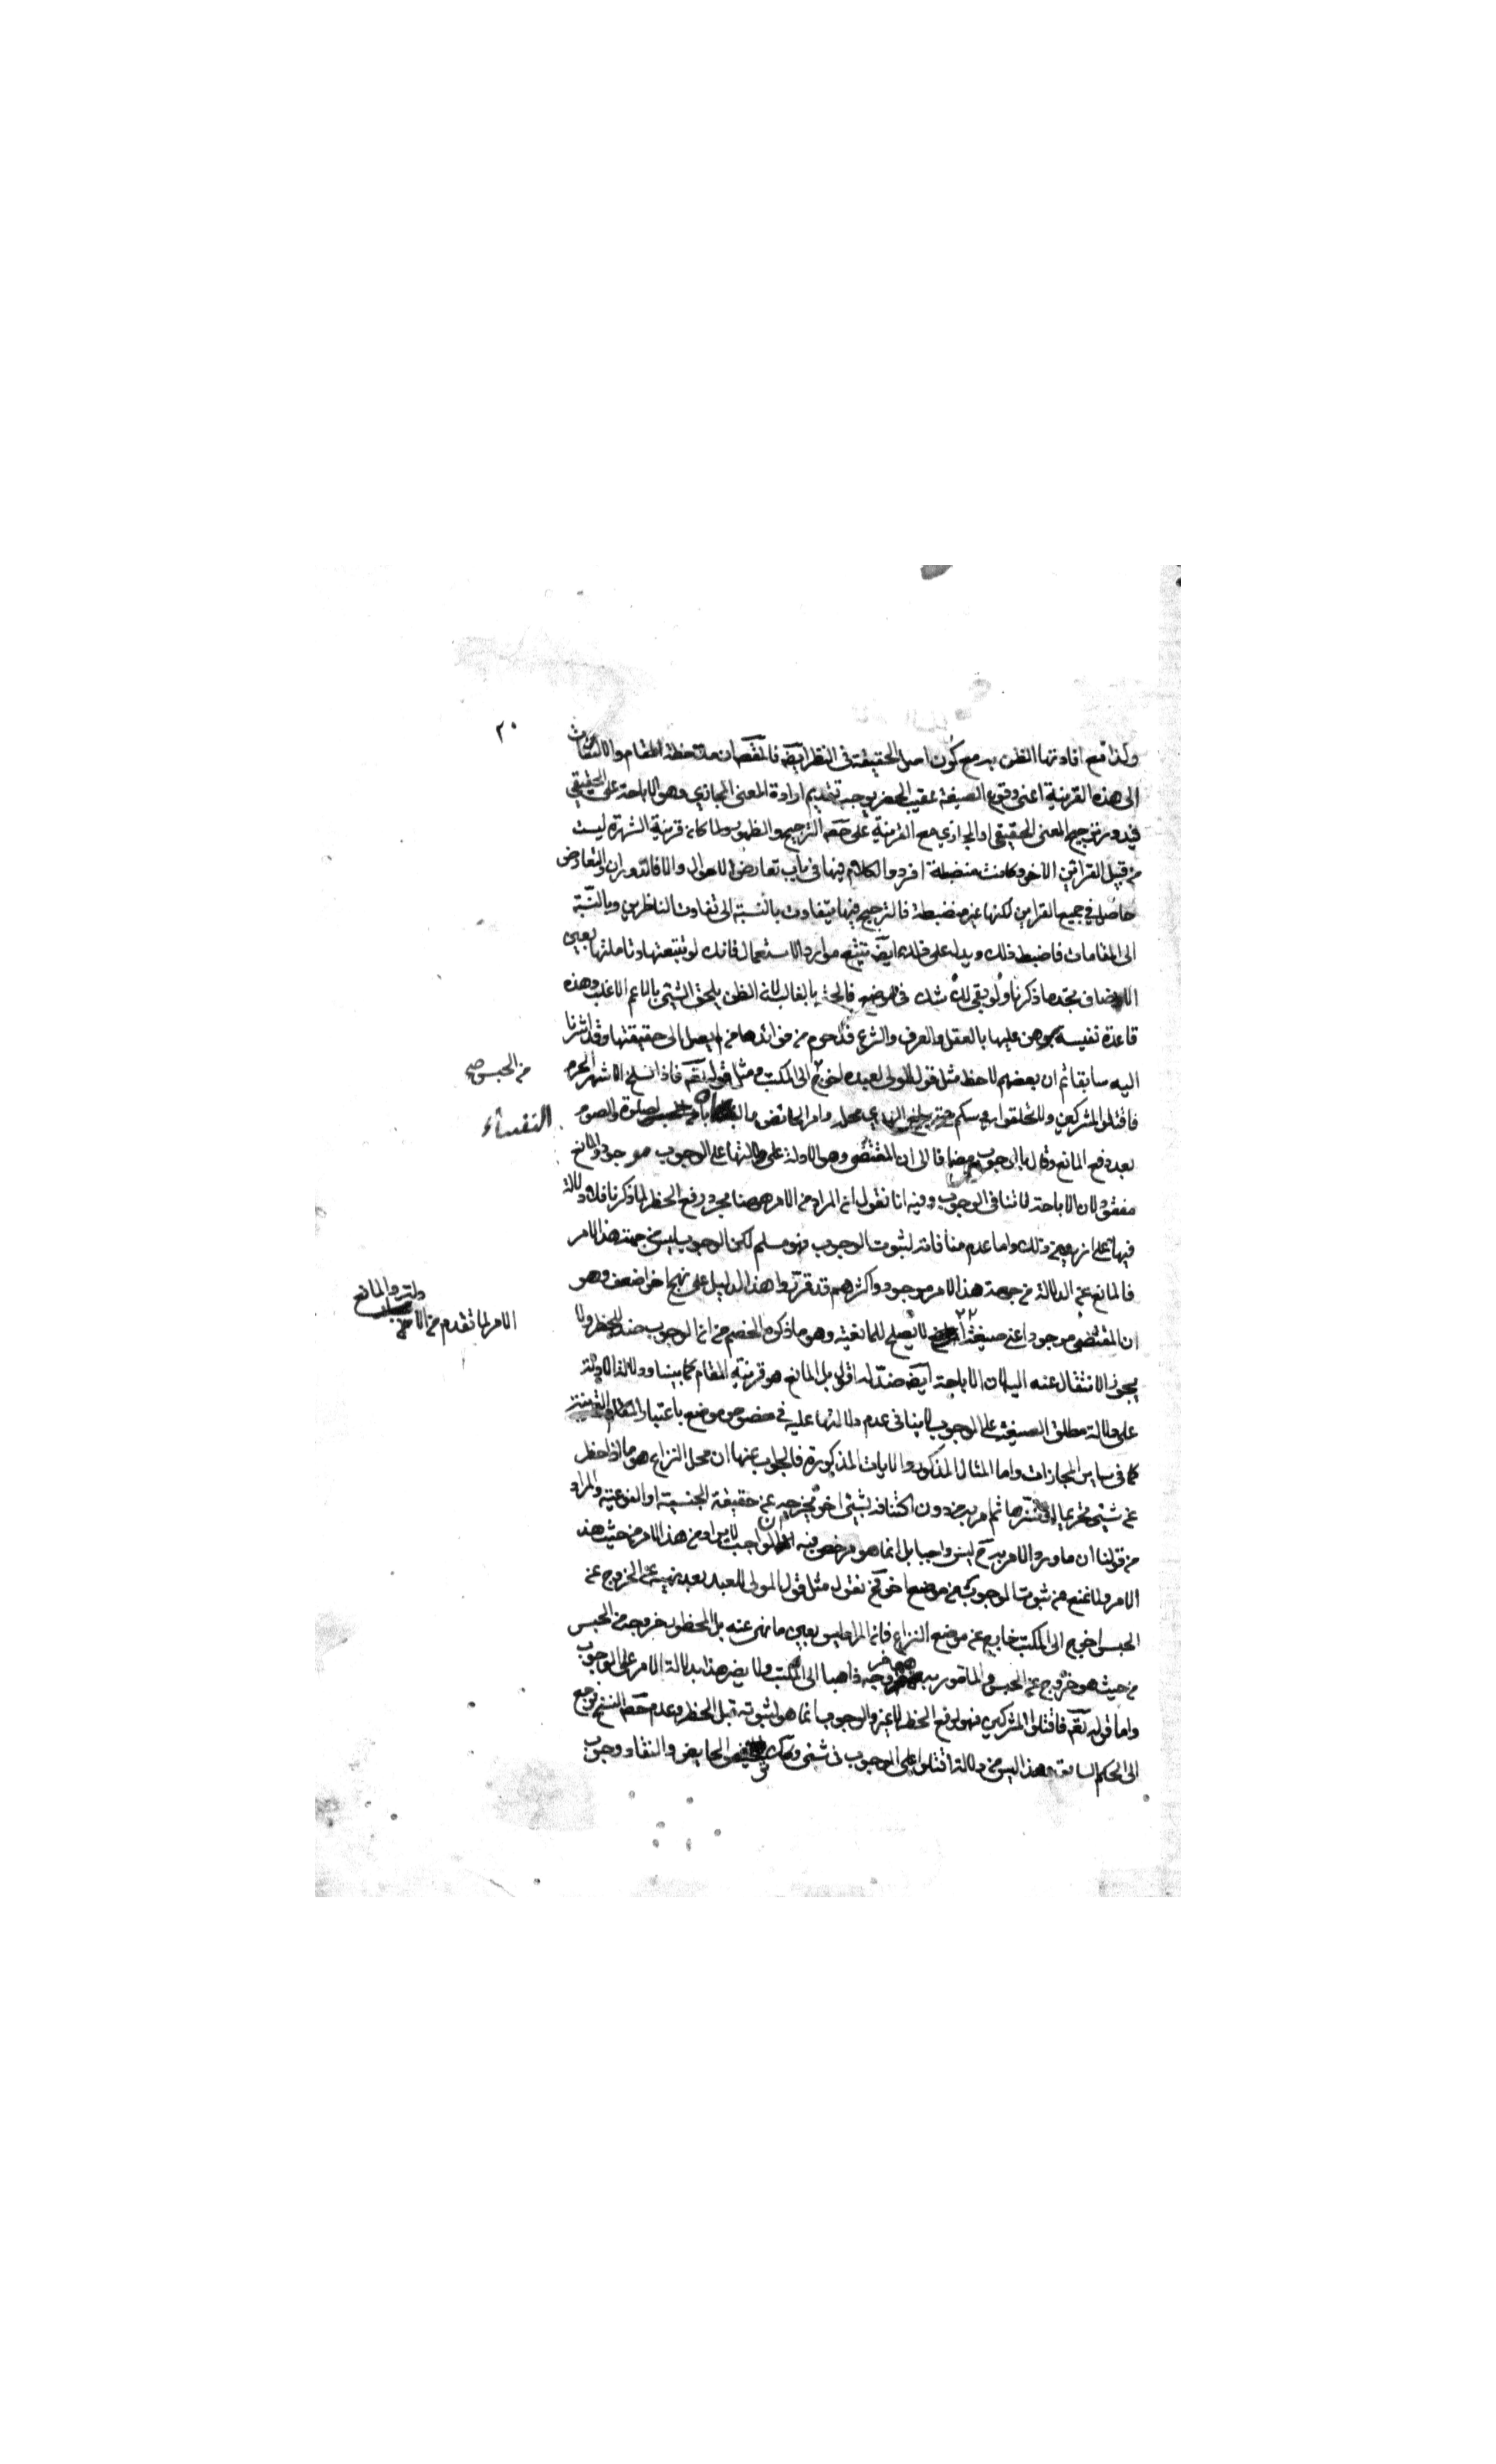 ٢٠
وكذا مع افادتها الظن به مع كون اصل الحقيقة في النظر ايضا فالمقصان ملاحظة المقام والالتفات
الى هذه القرينة اعني وقوع الصيغة عقيب الحضر يوجب تقديم ارادة المعنى المجازي وهو الاباحة على الحقيقي
ترجيح المعنى الحقيقي او المجازي مع القرينة على الترجيح والظهور ولما كانت قرينة الشهرة ليست
من قبيل القراين الاخر وكانت منضبطة افردوا الكلام فيها في باب تعارض الاحوال والا فالدوران والتعارض
حاصل في جميع القراين لكنها غير منضبطة فالترجيح فيها يتفاوت بالنسبة الى تفاوت الناظرين وبالنسبة
الى المقامات فاضبط ذلك ويدل على ذلك ايضا تتبع موارد الاستعمال فانك لو تتبعتها وتاملتها بعين
الانصاف تجد ما ذكرنا ولو بقي لك شك في فالحق بالغالب لان الظن يلحق الشيء بالاعم الاغلب وهذه
قاعدة نفيسة مبرهن عليها بالعقل والعرف والشرع قد حرم من فوائدها من لم يصل الى حقيقتها وقد اشرنا
اليه سابقا ثم ان بعضهم لاحظ مثل قول المولى لعبده اخرج الى المكتب ومثل قوله تعا فاذا انسلخ الاشهر الحرم
من الحبس صح
فاقتلوا المشركين ولا تحلقوا رؤسكم حتى يبلغ الهدي محله وامر الحائض و بالصلوة والصوم
النفساء
بعد رفع المانع وقال بالوجوب فيها الى ان المقتضى وهو الادلة على دلالتها على الوجوب موجود والمانع
مفقود لان الاباحة لا تنافي الوجوب وفيه انا نقول ان المراد من الامر هنا مجرد رفع الحظر لما ذكرنا فلا دلالة
فيها على ازيد من ذلك واما عدم منافاته لثبوت الوجوب فهو مسلم لكن الوجوب ليس من جهة هذا الامر
فالمانع عن الدلالة من جهة هذا الامر موجود واكثرهم قد قرروا هذا الدليل على نهج اخر اضعف وهو
دلته والمانع
ان المقتضى موجود اعني صيغة لا يصلح للمانعية وهو ما ذكره الخصم من ان الوجوب ضد للحظر ولا
الامر لما تقدم من الا
يجوز الانتقال عنه اليه لان الاباحة ايضا ضد له اقول بل المانع هو قرينة المقام كما بينا ودلالة الادلة
على دلالة مطلق الصيغة على الوجوب لا ينافي عدم دلالتها عليه في خصوص موضع باعتبار المقام والقرينة
كما في ساير المجازات واما المثال المذكور والايات المذكورة فالجواب عنها ان محل النزاع هو ما اذا حظر
عن شيء تحريما او تنزيها ثم امر به من دون اكتنافه بشيء اخر يخرجه عن حقيقة الجنسية او النوعية والمراد
من قولنا ان ما ورد الامر به ح ليس واجبا بل انما هو مرخص فيه ان الواجب لا يراد من هذا الامر من حيث هذا
الامر ولا نمنع من ثبوت الوجوب من موضع اخر فح نقول مثل قول المولى للعبد بعد نهيه عن الخروج عن
الحبس اخرج الى المكتب خارج عن موضع النزاع فان المراد ليس بعين ما نهى عنه بل المحظور خروجه من الحبس
من حيث هو خروج عن الحبس والمأمور به هو خروجه ذاهبا الى المكتب ولا يضر هذا بدلالة الامر على الوجوب
واما قوله تعا فاقتلوا المشركين فهو لرفع الحظر لا غير والوجوب انما هو لثبوته قبل الحظر وعدم النسخ فرجع
الى الحكم السابق وهذا ليس من دلالة اقتلوا على الوجوب في شيء وكذلك الحايض والنفساء ووجوب